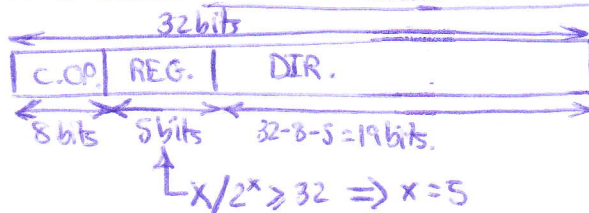 32 bits
C.OP. REG. DIR.
8 bits 5 bits 32-8-5=19 bits.
x/2^x ≥ 32 ⇒ x = 5